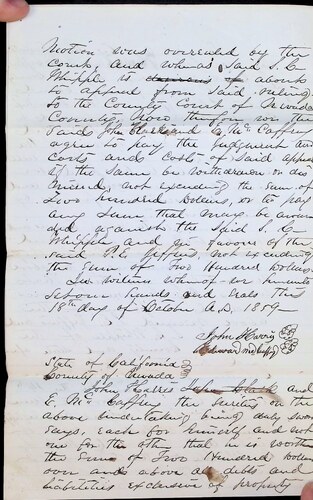 Motion was overruled by the
Court, and whereas Said S. C.
Whipple is about
to appeal from Said ruling
to the County Court of Nevada
County, Now therefore we the
Said John and E. McCaffrey
agree to pay the judgment and
costs and costs of Said appeal
if the Same be withdrawn or dis
missed, not exceeding the sum of
Two hundred Dollars, or to pay
any Sum that may be awar
ded against the Said S. C.
Whipple and in favor of the
Said not exceeding
the Sum of Two Hundred Dollars
In Witness whereof we hereunto
set our hands and seals this
18th day of October A.D. 1859
John
Edward
State of California
County of Nevada
John and
E. McCaffrey the sureties on the
above undertaking being duly sworn
says, each for himself and not
one for the other that he is worth
the Sum of Two Hundred Dollars
over and above all debts and
liabilities exclusive of property